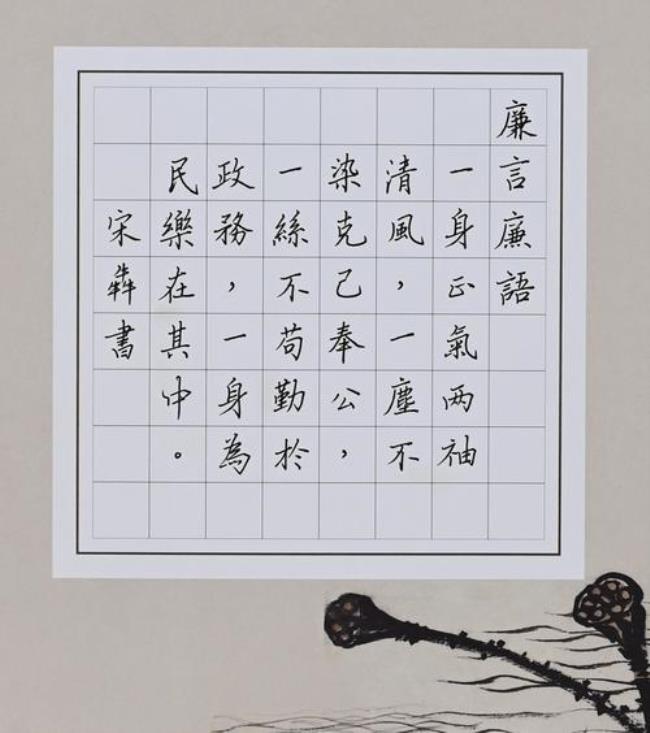 廉言廉語
一身正氣两袖
清風，一塵不
染克己奉公，
一絲不苟勤於
政務，一身為
民樂在其中。
宋犇書